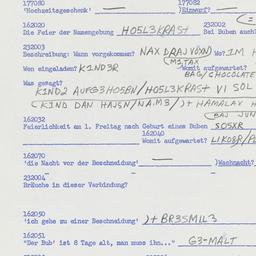 177080 177082
'Hochzeitsgeschenk' — )Einwerf? —
162020 232002
Die Feier der Namengebung HO5L3KRASt Bei Buben auch
232003
Beschreibung: Wann vorgekommen? NAX DRAJVÖXN) Wo? IM H
MITAX
Wen eingeladen? K1ND3R Womit aufgewartet?
BAG/CHOCOLATE
Was gesagt?
K1ND2 AUFG3HO5BN/HO5L3KRASt VI SOL
(KIND DAN HAJSN/N.A.M3/)+ HAMALAV H
(BAJ JUN
162032
Feierlichkeit am 1. Freitag nach Geburt eines Buben SO5XR
162040
Womit aufgewartet? LIKO2R/
162070
'die Nacht vor der Beschneidung' — )Wachnacht?
232004
Bräuche in dieser Verbindung?
162050
'ich gehe zu einer Beschneidung' )+ BR3SMIL3
162051
"Der Bub' ist 8 Tage alt, man muss ihn..." G3-MALT